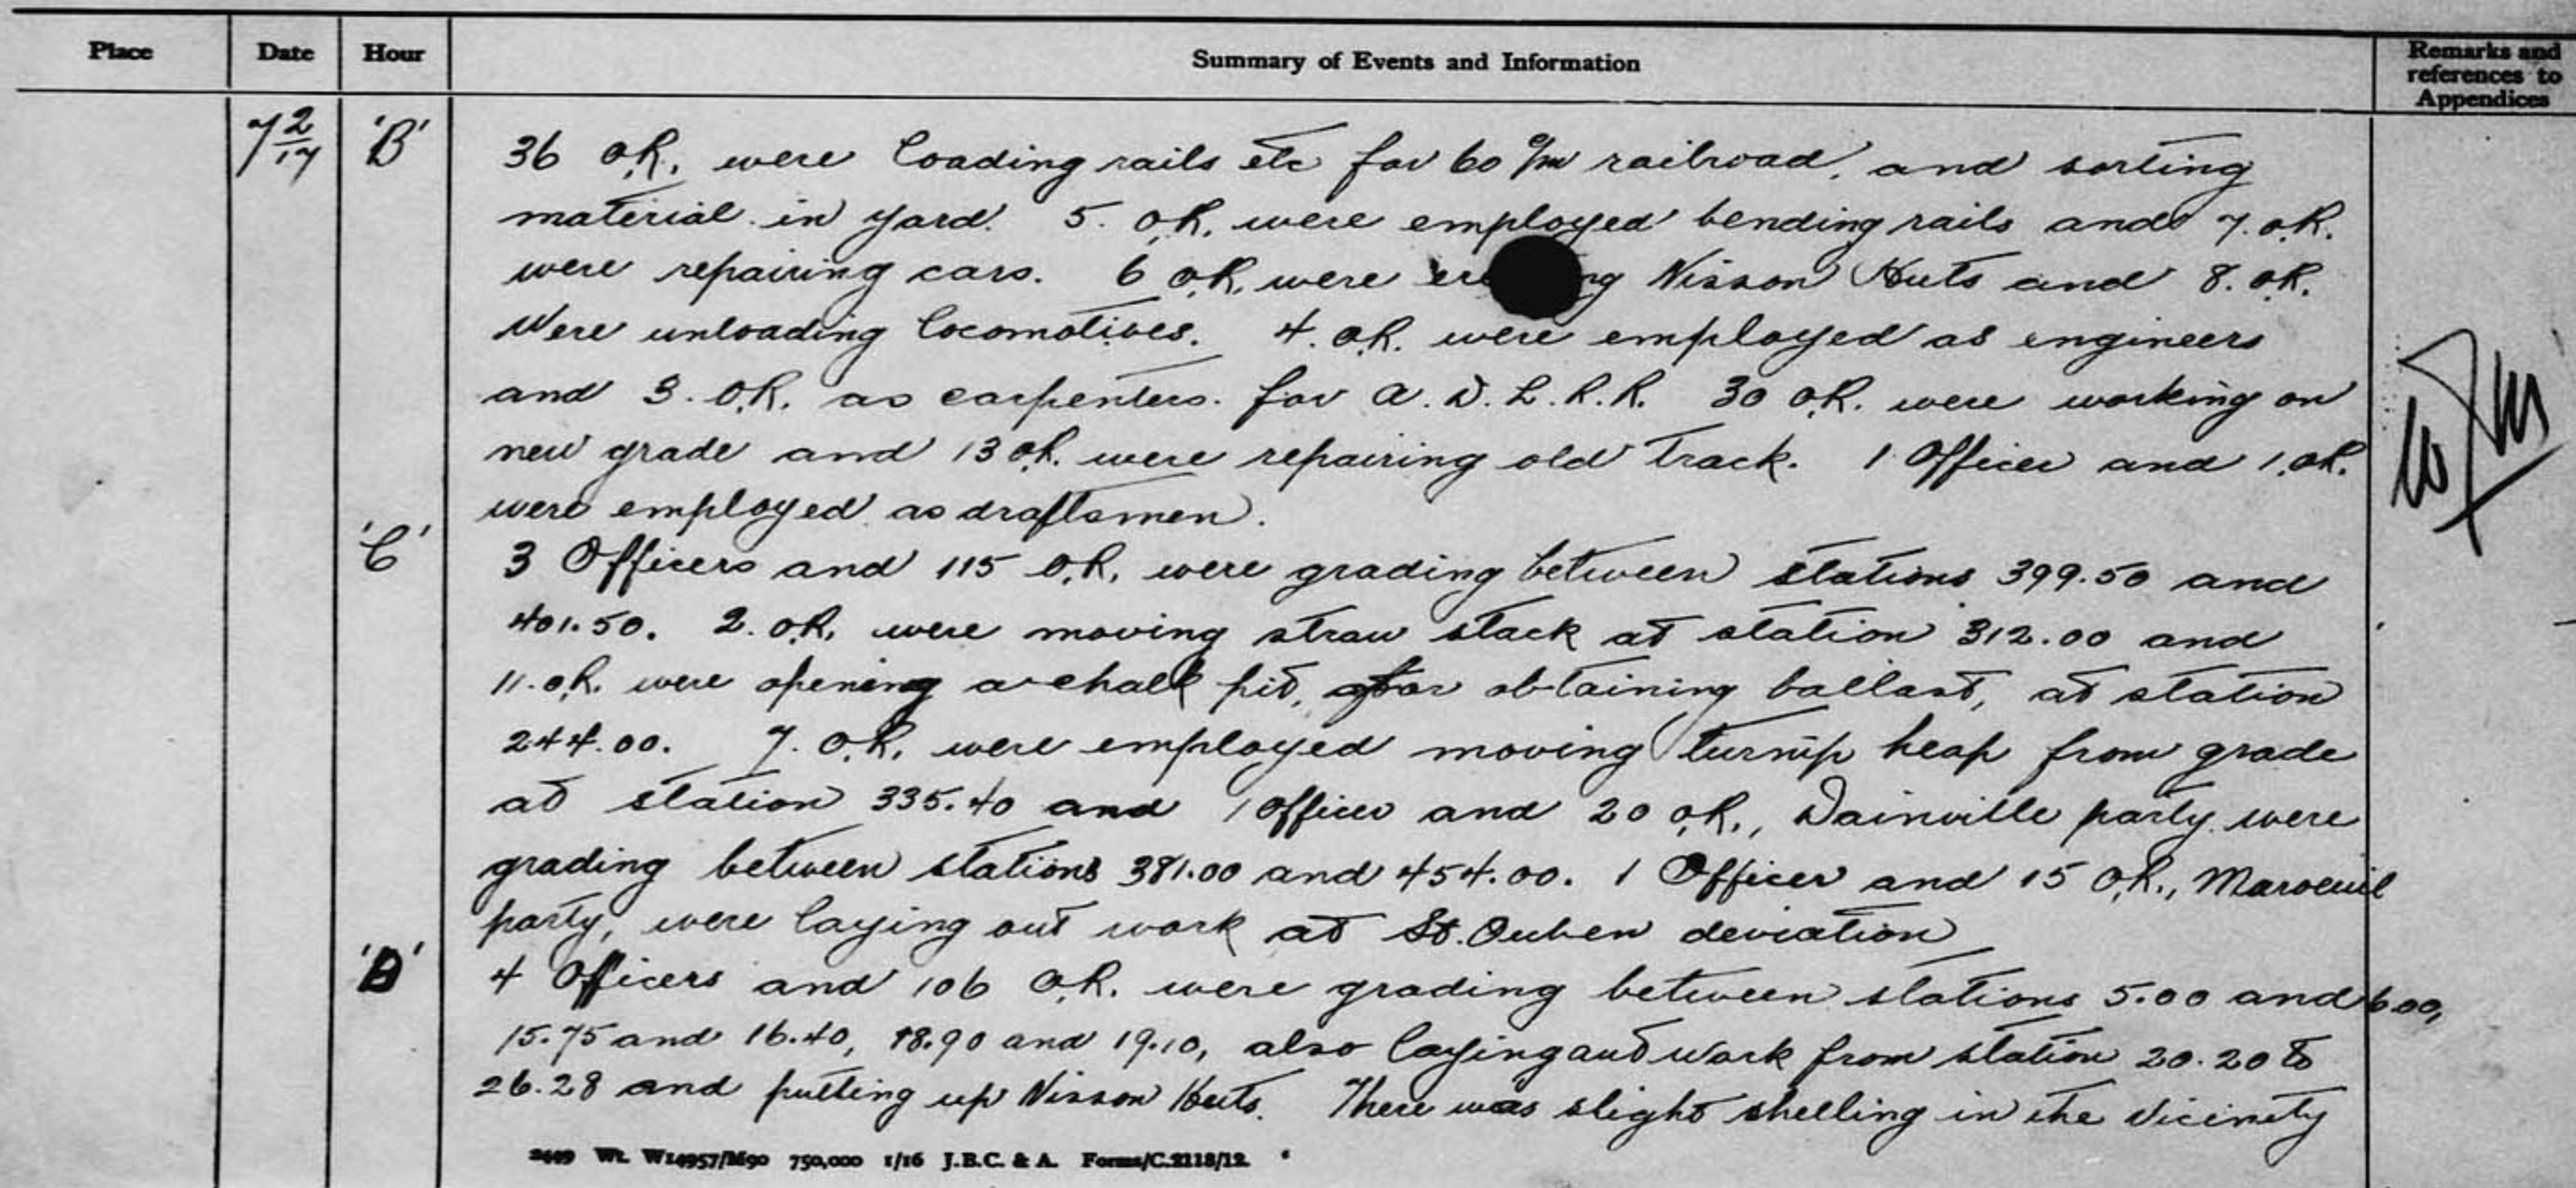 Place Date Hour Summary of Events and Information Remarks and references to Appendices
7 2/17 'B' 36 O.R. were loading rails etc for 60 c/m railroad, and sorting
material in yard. 5. O.R. were employed bending rails and 7. O.R.
were repairing cars. 6 O.R. were ere ng Nisson Huts and 8. O.R.
were unloading locomotives. 4. O.R. were employed as engineers
and 3. O.R. as carpenters. for A.D.L.R.R. 30 O.R. were working on
new grade and 13 O.R. were repairing old track. 1 Officer and 1. O.R.
were employed as draftsmen.
'C' 3 Officers and 115 O.R. were grading between stations 399.50 and
401.50. 2. O.R. were moving straw stack at station 312.00 and
11. O.R. were opening a chalk pit, for obtaining ballast, at station
244.00. 7. O.R. were employed moving turnip heap from grade
at station 335.40 and 1 Officer and 20 O.R., Dainville party were
grading between stations 381.00 and 454.00. 1 Officer and 15 O.R., Maroeuil
party, were laying out work at St. Ouben deviation
'D' 4 Officers and 106 O.R. were grading between stations 5.00 and 6.00,
15.75 and 16.40, 18.90 and 19.10, also laying out work from station 20.20 to
26.28 and putting up Nisson Huts. There was slight shelling in the vicinity
2449 Wt. W14957/M90 750,000 1/16 J.B.C. & A. Forms/C.2118/12.